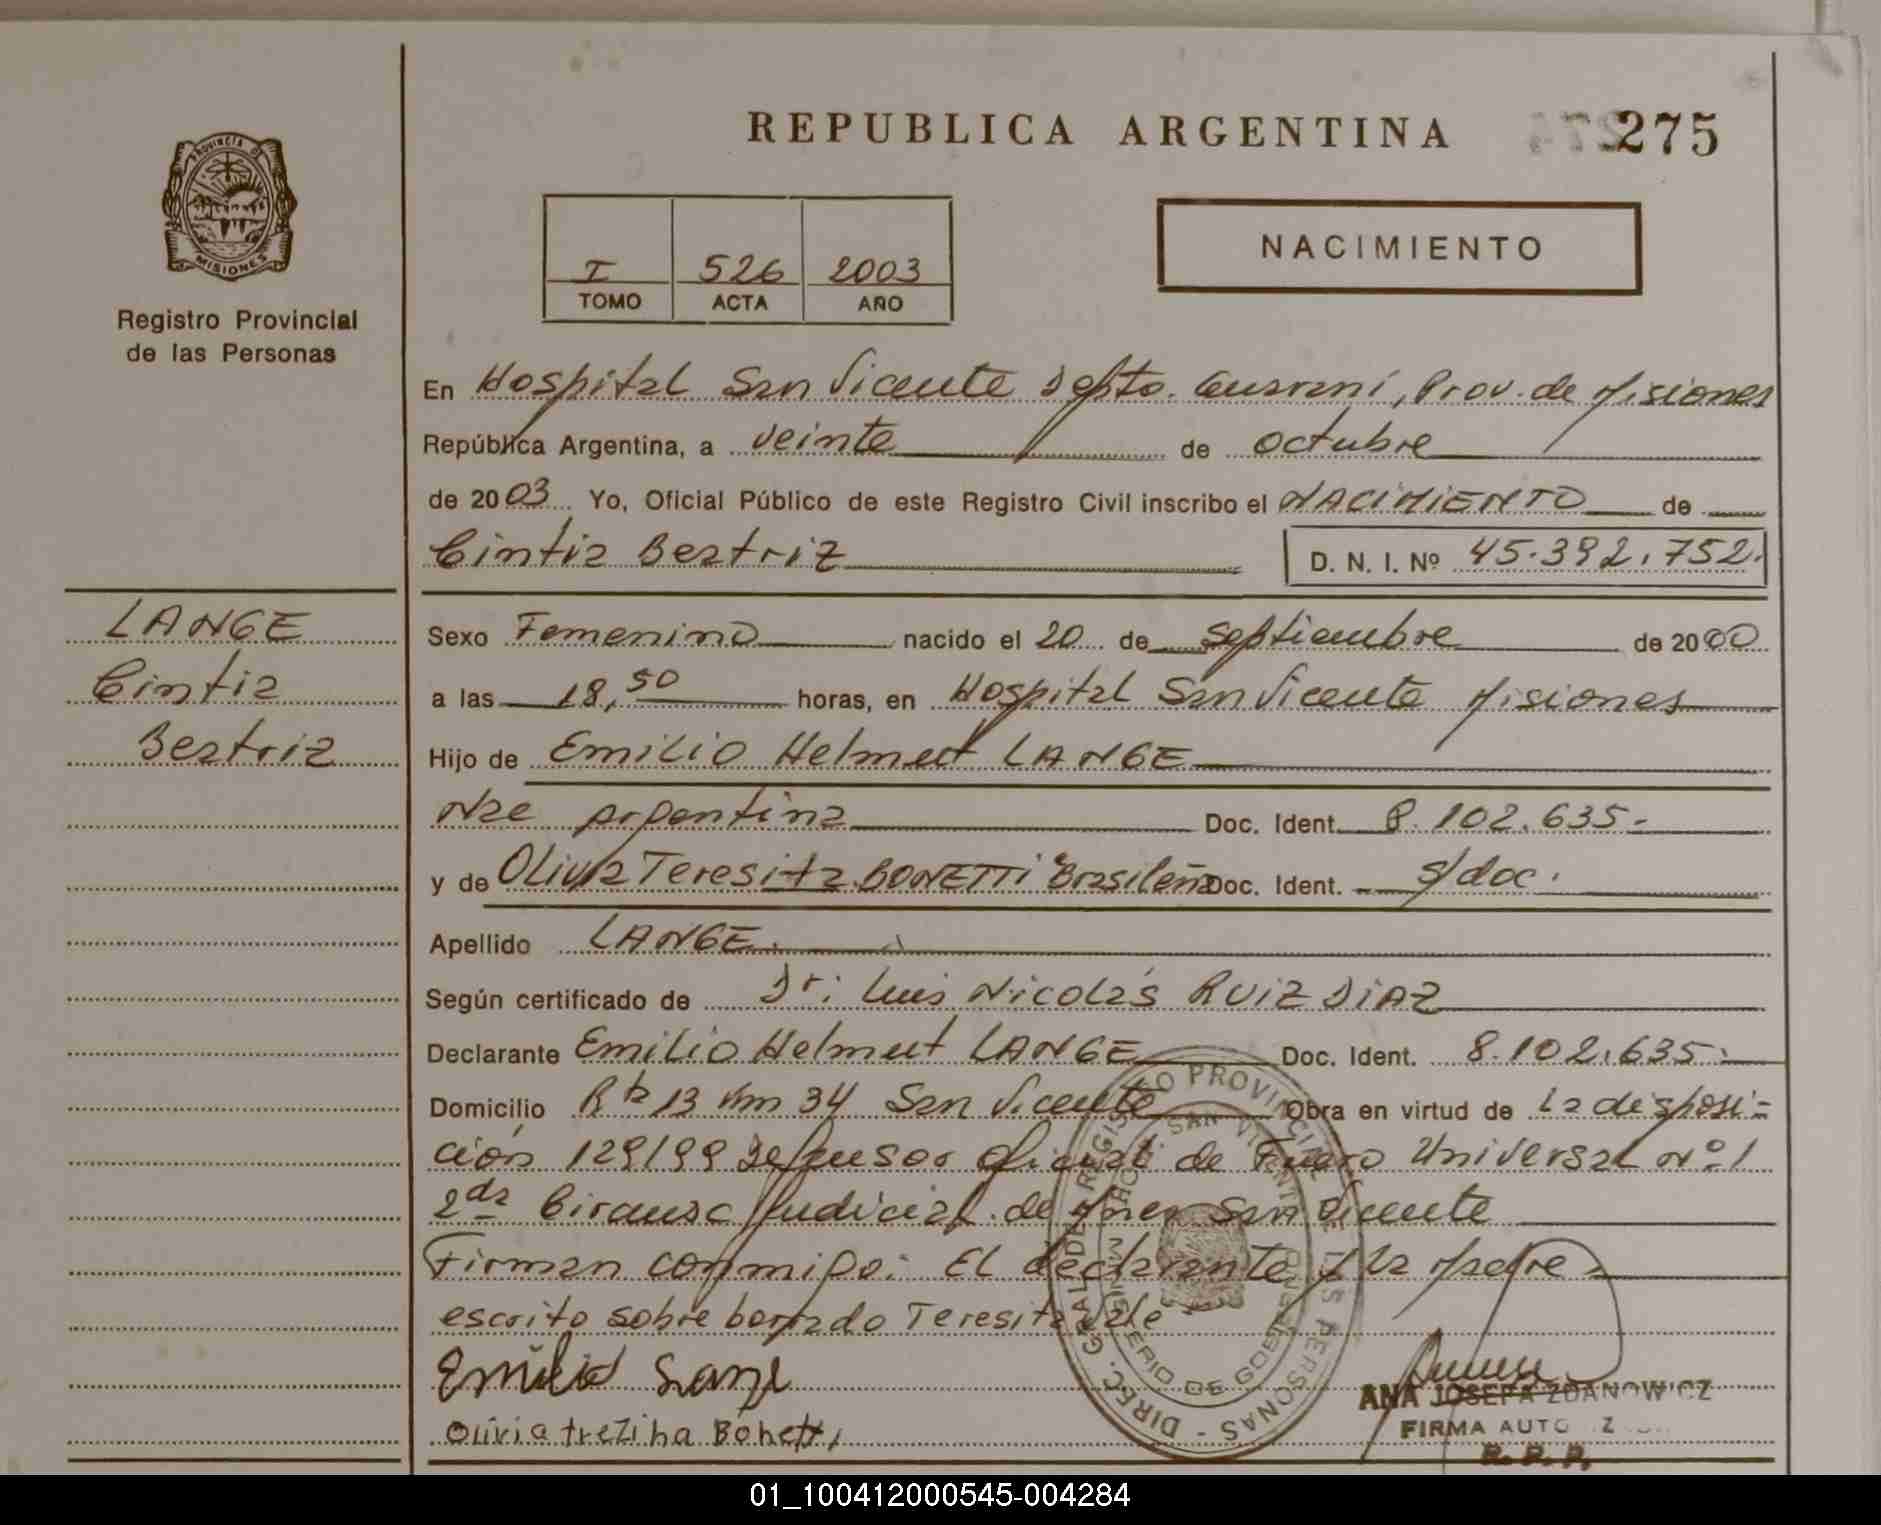 REPUBLICA ARGENTINA 275
PROVINCIA DE
MISIONES
Registro Provincial
de las Personas
I 526 2003
TOMO ACTA AÑO
NACIMIENTO
En Hospital San Vicente Depto. Guaraní, Prov. de Misiones
República Argentina, a veinte de octubre
de 2003 Yo, Oficial Público de este Registro Civil inscribo el NACIMIENTO de
Cintia Beatriz D. N. I. Nº 45.392.752.
LANGE
Cintia
Beatriz
Sexo Femenino nacido el 20 de septiembre de 2000
a las 18,50 horas, en Hospital San Vicente Misiones
Hijo de Emilio Helmut LANGE
Nac Argentina Doc. Ident. 8.102.635-
y de Olivia Teresita BONETTI Brasileña Doc. Ident. s/doc.
Apellido LANGE.
Según certificado de Dr: Luis Nicolás RUIZ DIAZ
Declarante Emilio Helmut LANGE Doc. Ident. 8.102.635-
Domicilio Rta 13 Km 34 San Vicente Obra en virtud de la disposi=
ción 129/99 Defensor Oficial de Fuero Universal Nº 1
2da Circunsc Judicial de Mnes San Vicente
Firman conmigo: El declarante y la Madre
escrito sobre borrado Teresita Vale
Emilio Lange
Olivia treziha Bonetti
DIREC. GRAL. DE REGISTRO PROVINCIAL DE LAS PERSONAS -
SAN VICENTE
MINISTERIO DE GOBIERNO
ANA JOSEFA ZDANOWICZ
FIRMA AUTO
R. P. P.
01_100412000545-004284